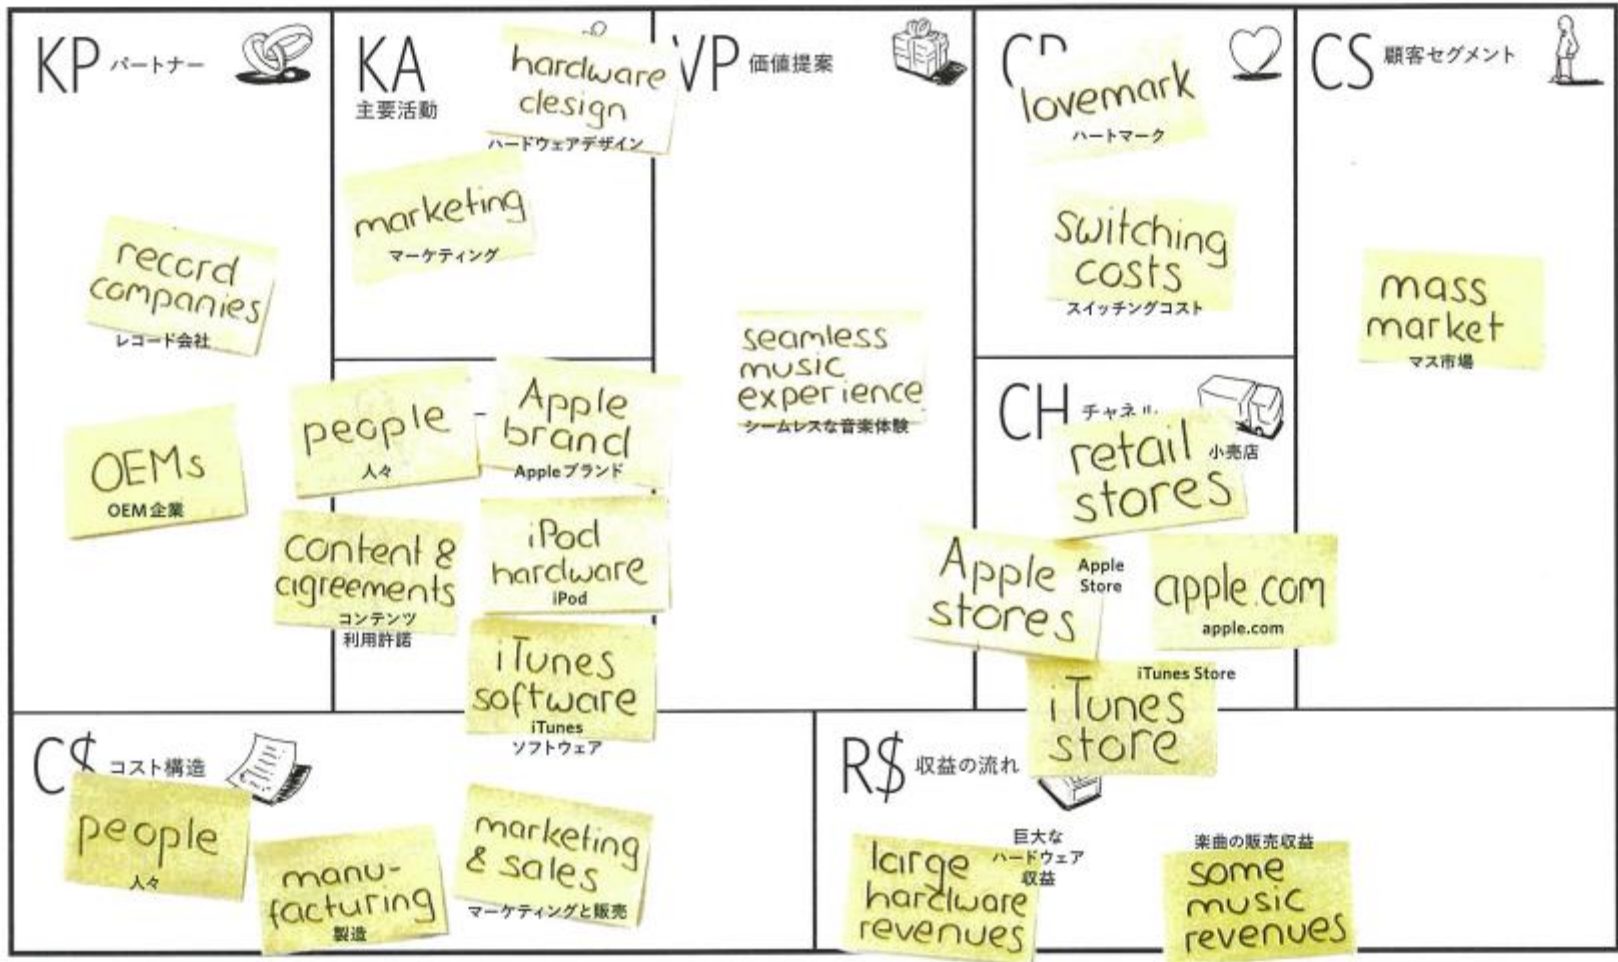 KP パートナー
record
companies
レコード会社
OEMs
OEM企業
KA
主要活動
hardware
design
ハードウェアデザイン
marketing
マーケティング
people
人々
Apple
brand
Appleブランド
content &
agreements
コンテンツ
利用許諾
iPod
hardware
iPod
iTunes
software
iTunes
ソフトウェア
VP 価値提案
seamless
music
experience
シームレスな音楽体験
CR
lovemark
ハートマーク
switching
costs
スイッチングコスト
CH チャネル
retail
stores
小売店
Apple
stores
Apple
Store
apple.com
apple.com
iTunes Store
iTunes
store
CS 顧客セグメント
mass
market
マス市場
C$ コスト構造
people
人々
manu-
facturing
製造
marketing
& sales
マーケティングと販売
R$ 収益の流れ
large
hardware
revenues
巨大な
ハードウェア
収益
楽曲の販売収益
some
music
revenues